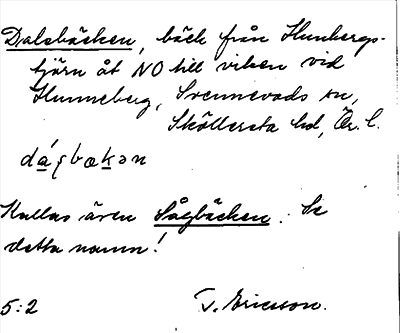 Dalsbäcken, bäck från Hunbergs-
tjärn åt NO till viken vid
Hunneberg, Svennevads sn,
Sköllersta hd, Ör. l.
dáʂbækən
Kallas även Sågbäcken. Se
detta namn!
5:2 T. Ericsson.